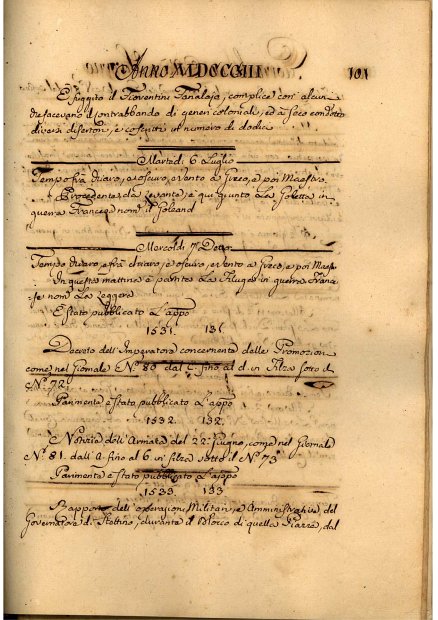 Anno MDCCCIII
101
È fuggito il Fiorentini Tanaloja, complice con alcuni
che facevano il contrabbando di generi coloniali, ed à seco condotto
diversi disertori, e coscritti al numero di dodici
Martedì 6 Luglio
Tempo frà chiaro, e oscuro, e vento a Greco, e poi Maestro
Procedente da Levante, è qui giunto La Goletta in
guerra Francese nom.
Mercoldì 7 Detto
Tempo chiaro, e frà chiaro, e oscuro, e vento a Greco, e poi Maest.
In questa mattina è partita La Filuga in guerra France
se nom. La Leggera
È stato pubblicato L'appo
1531. 131.
Decreto dell'Imperatore concernente delle Promozioni
come nel Giornale N.º 80 dal fino al d. in Filza sotto il
N.º 72.
Parimente è stato pubblicato L'appo
1532. 132.
Notizie dell'Armata del 22. Giugno, come nel Giornale
N.º 81. dall'A fino al 6 in filza sotto il N.º 73
Parimente è stato pubblicato L'appo
1533. 133
Rapporto dell'operazioni Militari, e Amministrative del
Governatore di Stettino, durante il Blocco di quella Piazza, dal